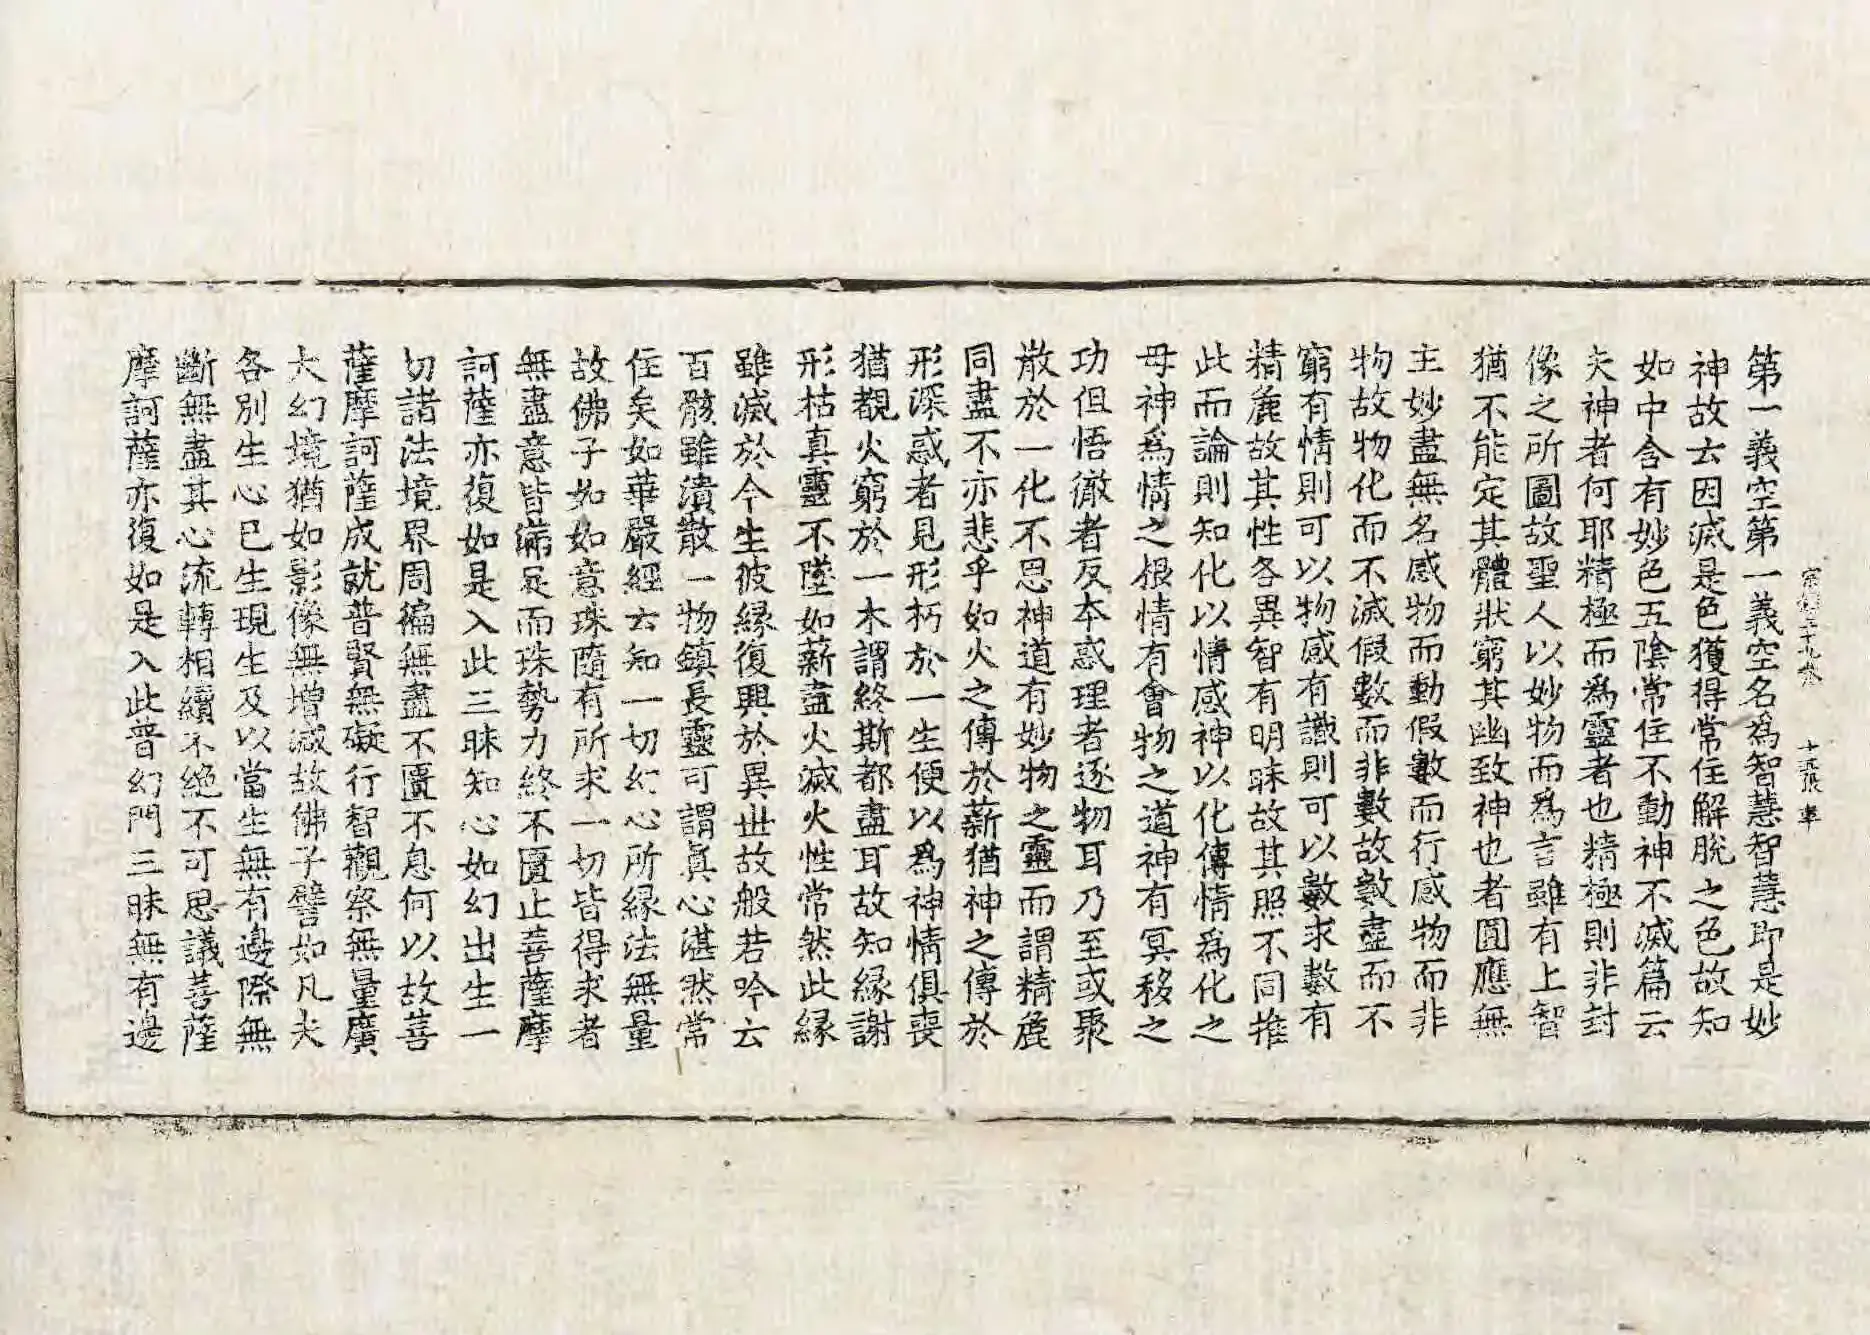 第一義空第一義空名為智慧智慧即是妙
神故云因滅是色獲得常住解脫之色故知
如中含有妙色五陰常住不動神不滅篇云
夫神者何耶精極而為靈者也精極則非封
像之所圖故聖人以妙物而為言雖有上智
猶不能定其體狀窮其幽致神也者圓應無
主妙盡無名感物而動假數而行感物而非
物故物化而不滅假數而非數故數盡而不
窮有情則可以物感有識則可以數求數有
精麁故其性各異智有明昧故其照不同推
此而論則知化以情感神以化傳情為化之
母神為情之根情有會物之道神有冥移之
功但悟徹者反本惑理者逐物耳乃至或聚
散於一化不思神道有妙物之靈而謂精麁
同盡不亦悲乎如火之傳於薪猶神之傳於
形深惑者見形朽於一生便以為神情俱喪
猶覩火窮於一木謂終斯都盡耳故知緣謝
形枯真靈不墜如薪盡火滅火性常然此緣
雖滅於今生彼緣復興於異世故般若吟云
百骸雖潰散一物鎮長靈可謂真心湛然常
住矣如華嚴經云知一切幻心所緣法無量
故佛子如如意珠隨有所求一切皆得求者
無盡意皆滿足而珠勢力終不匱止菩薩摩
訶薩亦復如是入此三昧知心如幻出生一
切諸法境界周徧無盡不匱不息何以故菩
薩摩訶薩成就普賢無礙行智觀察無量廣
大幻境猶如影像無增減故佛子譬如凡夫
各別生心已生現生及以當生無有邊際無
斷無盡其心流轉相續不絕不可思議菩薩
摩訶薩亦復如是入此普幻門三昧無有邊